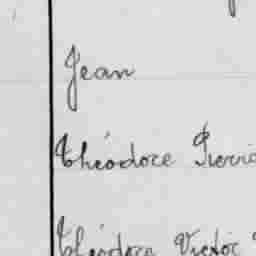 Jean
Théodore Pierric
Théodore Victor